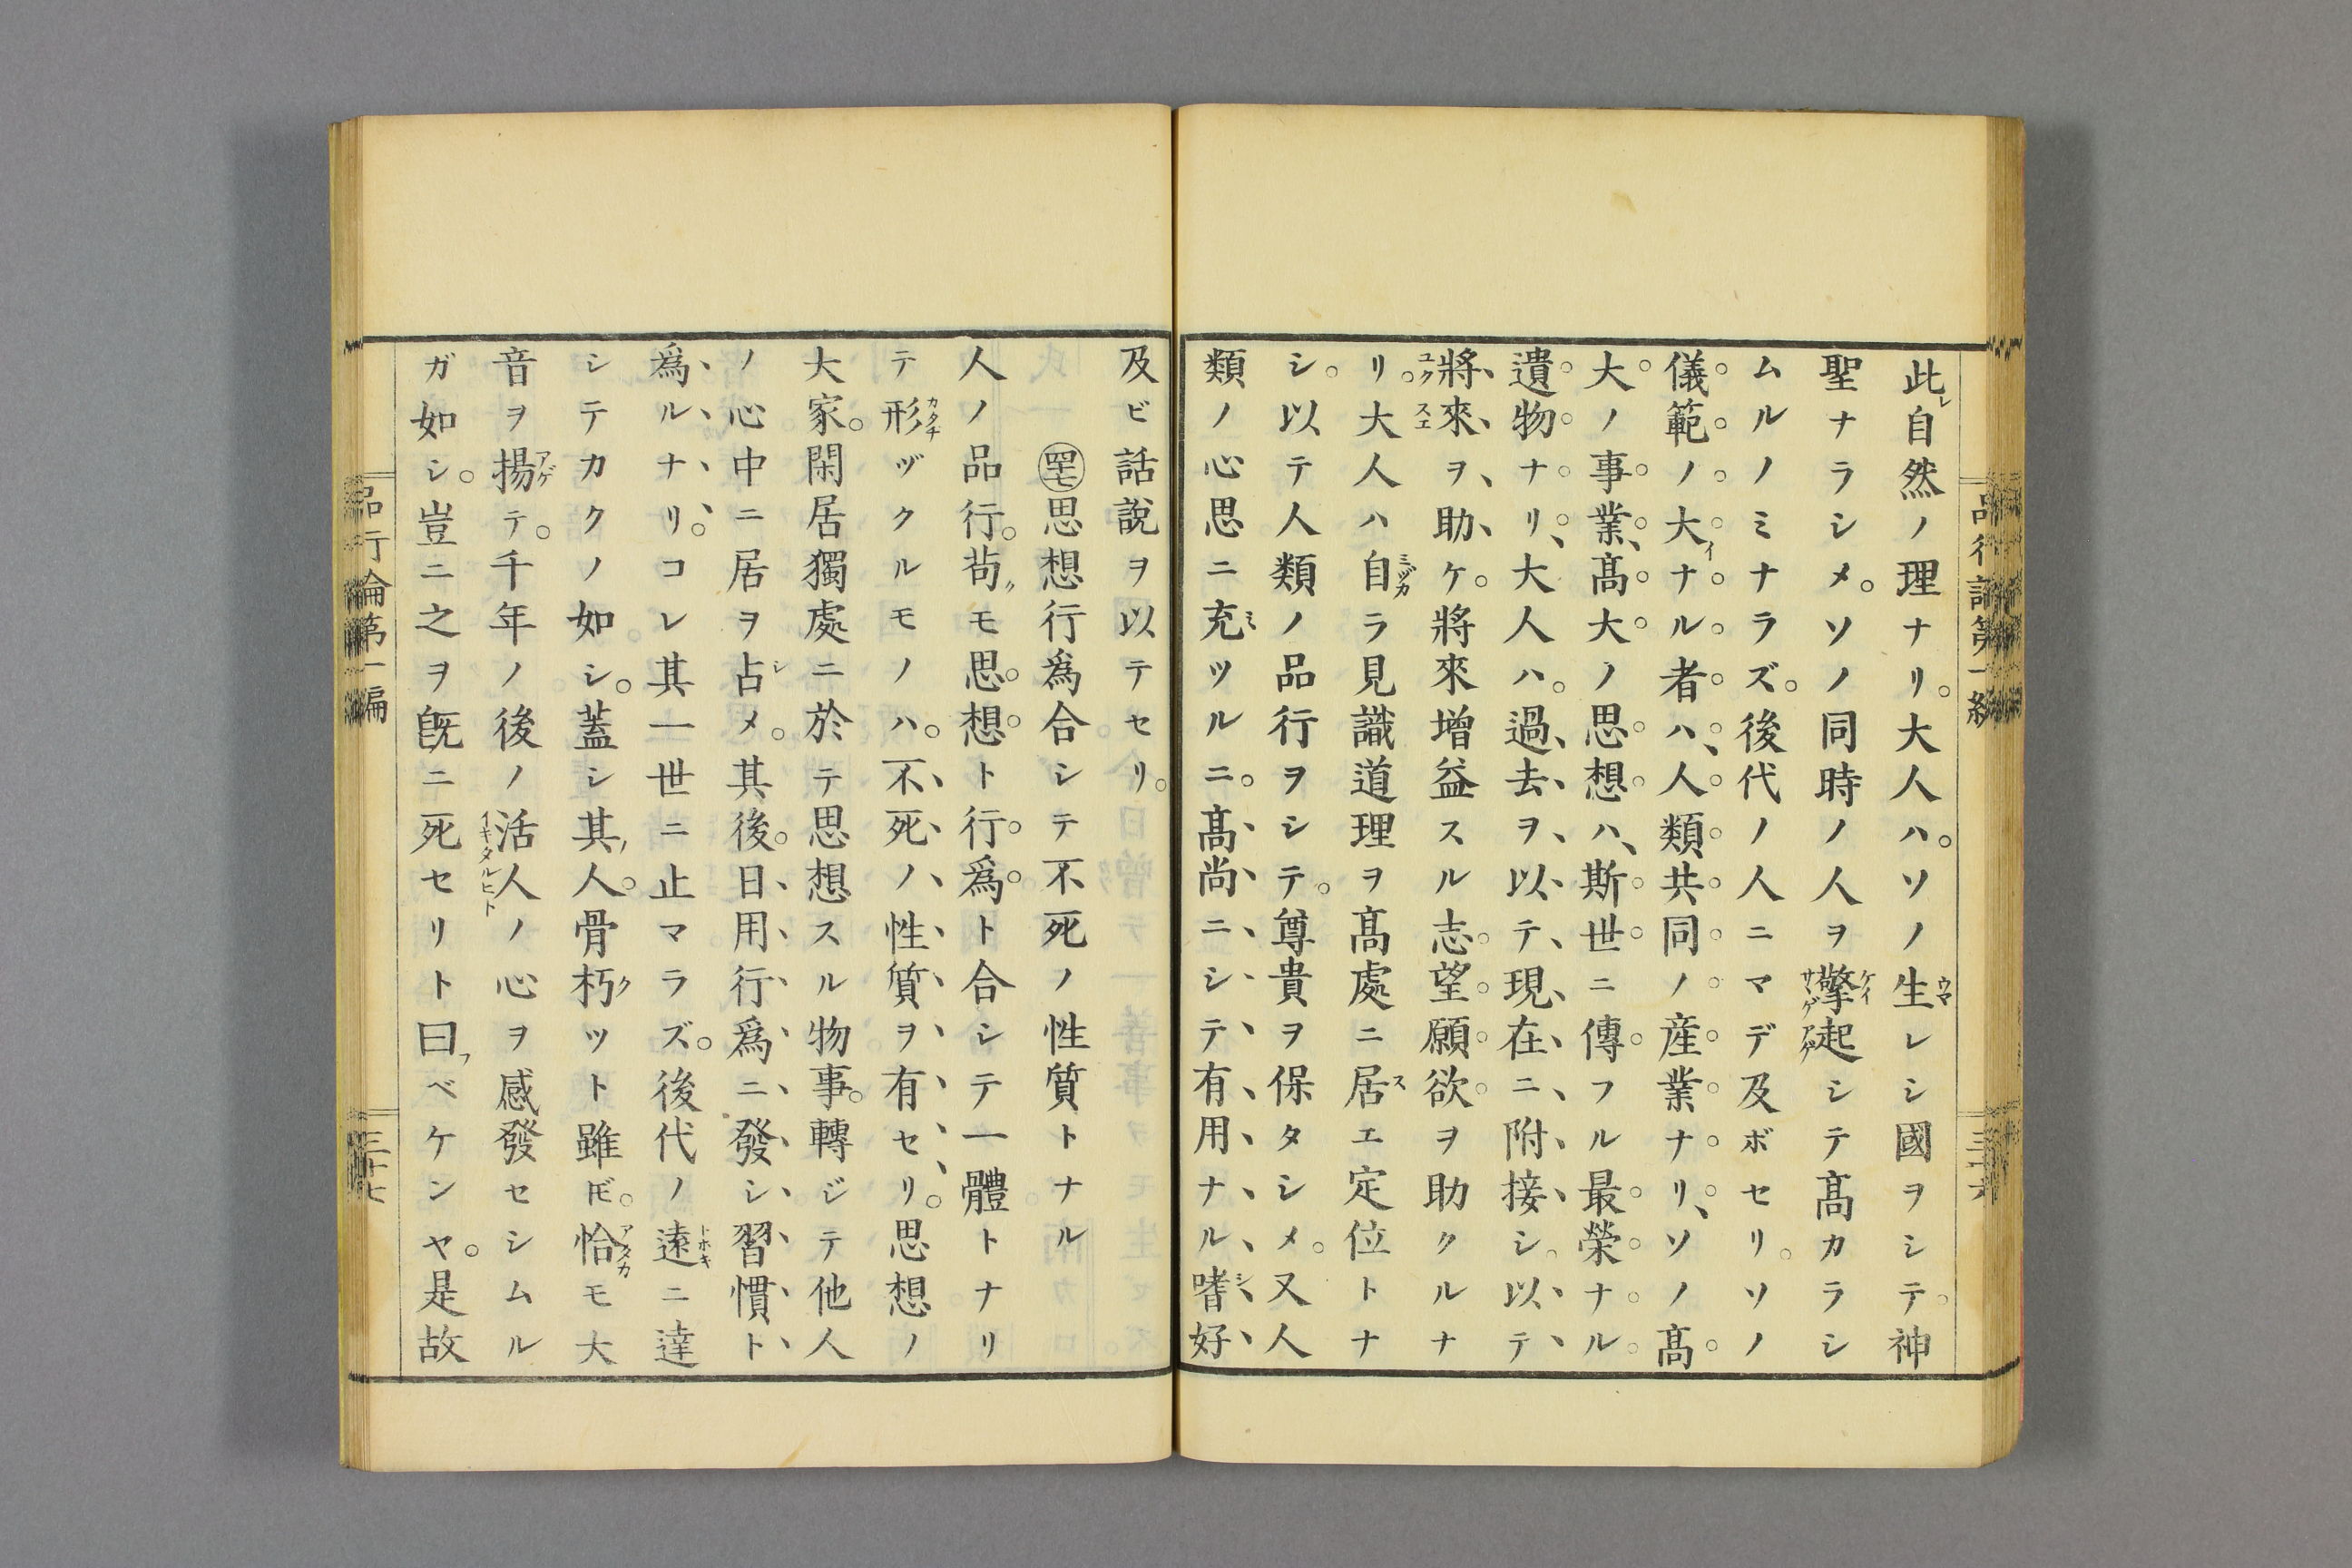 此レ自然ノ理ナリ。大人ハ。ソノ生レシ國ヲシテ。神
聖ナラシメ。ソノ同時ノ人ヲ擎起シテ髙カラシ
ムルノミナラズ。後代ノ人ニマデ及ボセリ。ソノ
儀範ノ大イナル者ハ、人類共同ノ産業ナリ、ソノ髙
大ノ事業、髙大ノ思想ハ、斯世ニ傳フル最榮ナル
遺物ナリ、大人ハ。過去ヲ以テ現在ニ附接シ。以テ
將來ヲ助ケ。將來增益スル志望願欲ヲ助クルナ
リ。大人ハ自ラ見識道理ヲ髙處ニ居エ定位トナ
シ。以テ人類ノ品行ヲシテ。尊貴ヲ保タシメ。又人
類ノ心思ニ充ツルニ。髙尚ニシテ有用ナル嗜好
品行論第一編
三十六
及ビ話說ヲ以テセリ。
㊼思想行爲合シテ不死ノ性質トナル
人ノ品行。苟クモ思想ト行爲ト合シテ一體トナリ
テ形ヅクルモノハ。不死ノ性質ヲ有セリ。思想ノ
大家。閑居獨處ニ於テ思想スル物事。轉ジテ他人
ノ心中ニ居ヲ占シメ。其後。日用行爲ニ發シ習慣ト
爲ルナリ。コレ其一世ニ止マラズ。後代ノ遠ニ達
シテカクノ如シ。蓋シ其ノ人。骨朽クツト雖𪜈。恰モ大
音ヲ揚テ。千年ノ後ノ活人ノ心ヲ感發セシムル
ガ如シ。豈ニ之ヲ旣ニ死セリト曰フベケンヤ。是故
品行論第一編
三十七